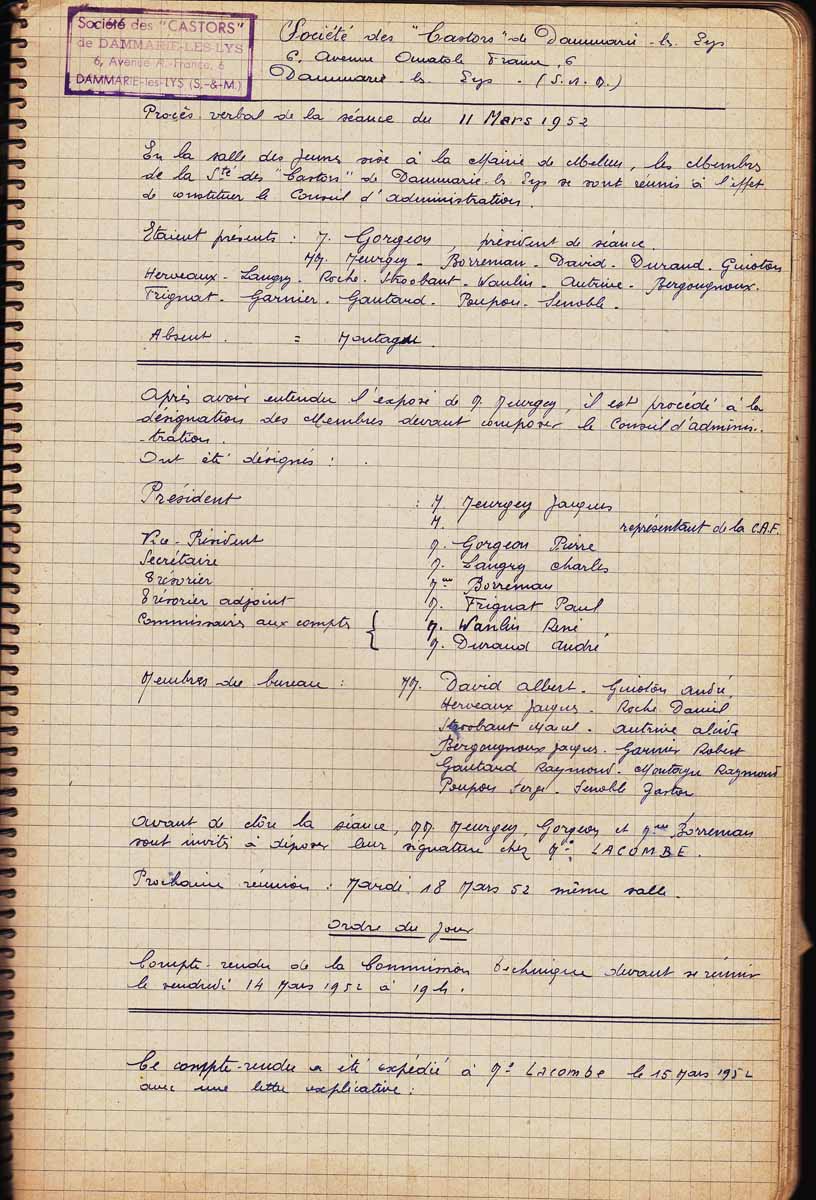 Société des "CASTORS"
de DAMMARIE-LES-LYS
6, Avenue A.-France, 6
DAMMARIE-les-LYS (S.-&-M.)
Société des "Castors" de Dammarie-les-Lys
6, Avenue Anatole France, 6
Dammarie-les-Lys - (S.&M.)
Procès verbal de la séance du 11 Mars 1952
En la salle des jeunes sise à la Mairie de Melun, les Membres
de la Sté des "Castors" de Dammarie-les-Lys se sont réunis à l'effet
de constituer le Conseil d'administration.
Etaient présents : M. Gorgeon, président de séance.
MM. Meurgey - Borreman - David - Durand - Guioton
Herveaux - Langry - Roche - Stroobant - Wanlin - Autrive - Bergougnoux.
Frignat - Garnier - Gautard - Poupou - Senoble.
Absent : = Montagu
Après avoir entendu l'exposé de M Meurgey, il est procédé à la
désignation des Membres devant composer le Conseil d'adminis-
tration.
Ont été désignés :
Président : M Meurgey Jacques
M. représentant de la C.A.F.
Vice-Président M. Gorgeon Pierre
Secrétaire M. Langry Charles
Trésorier Mme Borreman
Trésorier adjoint M. Frignat Paul
Commissaires aux comptes { M. Wanlin René
M. Durand André
Membres du bureau : MM. David Albert - Guioton André,
Herveaux Jacques - Roche Daniel
Stroobant Marcel - Autrive
Bergougnoux Jacques - Garnier Robert
Gautard Raymond - Montagu Raymond
Poupou Serge - Senoble
Avant de clôre la séance, MM. Meurgey, Gorgeon et Mme Borreman
sont invités à déposer leur signature chez Me LACOMBE.
Prochaine réunion : Mardi 18 Mars 52 même salle.
Ordre du Jour
Compte-rendu de la Commission technique devant se réunir
le vendredi 14 Mars 1952 à 19h.
Ce compte-rendu a été expédié à Me Lacombe le 15 Mars 1952
avec une lettre explicative.